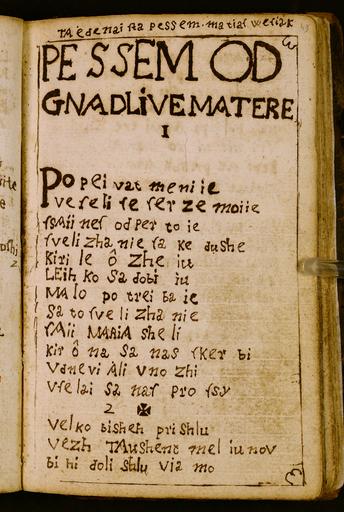 TA edenaista pessem. matias wesiak
PESSEM OD
GNADLIVE MATERE
I
Popeivat meni ie
veseli se ser ze moiie
od per to ie
sveli zha nie sa ke dushe
kiri le ô zhe iu
LEih ko Sa dobi iu
MAlo po trei ba ie
Sa to sve li zha nie
sAii MARiA she li
kir ô na sa nas sker bi
Vdnevi Ali vno zhi
vselai sa nas pro ssy
2 ✠
velko bisheh pri shlu
vezh TAushent mel iu nov
bi hi doli shlu via mo